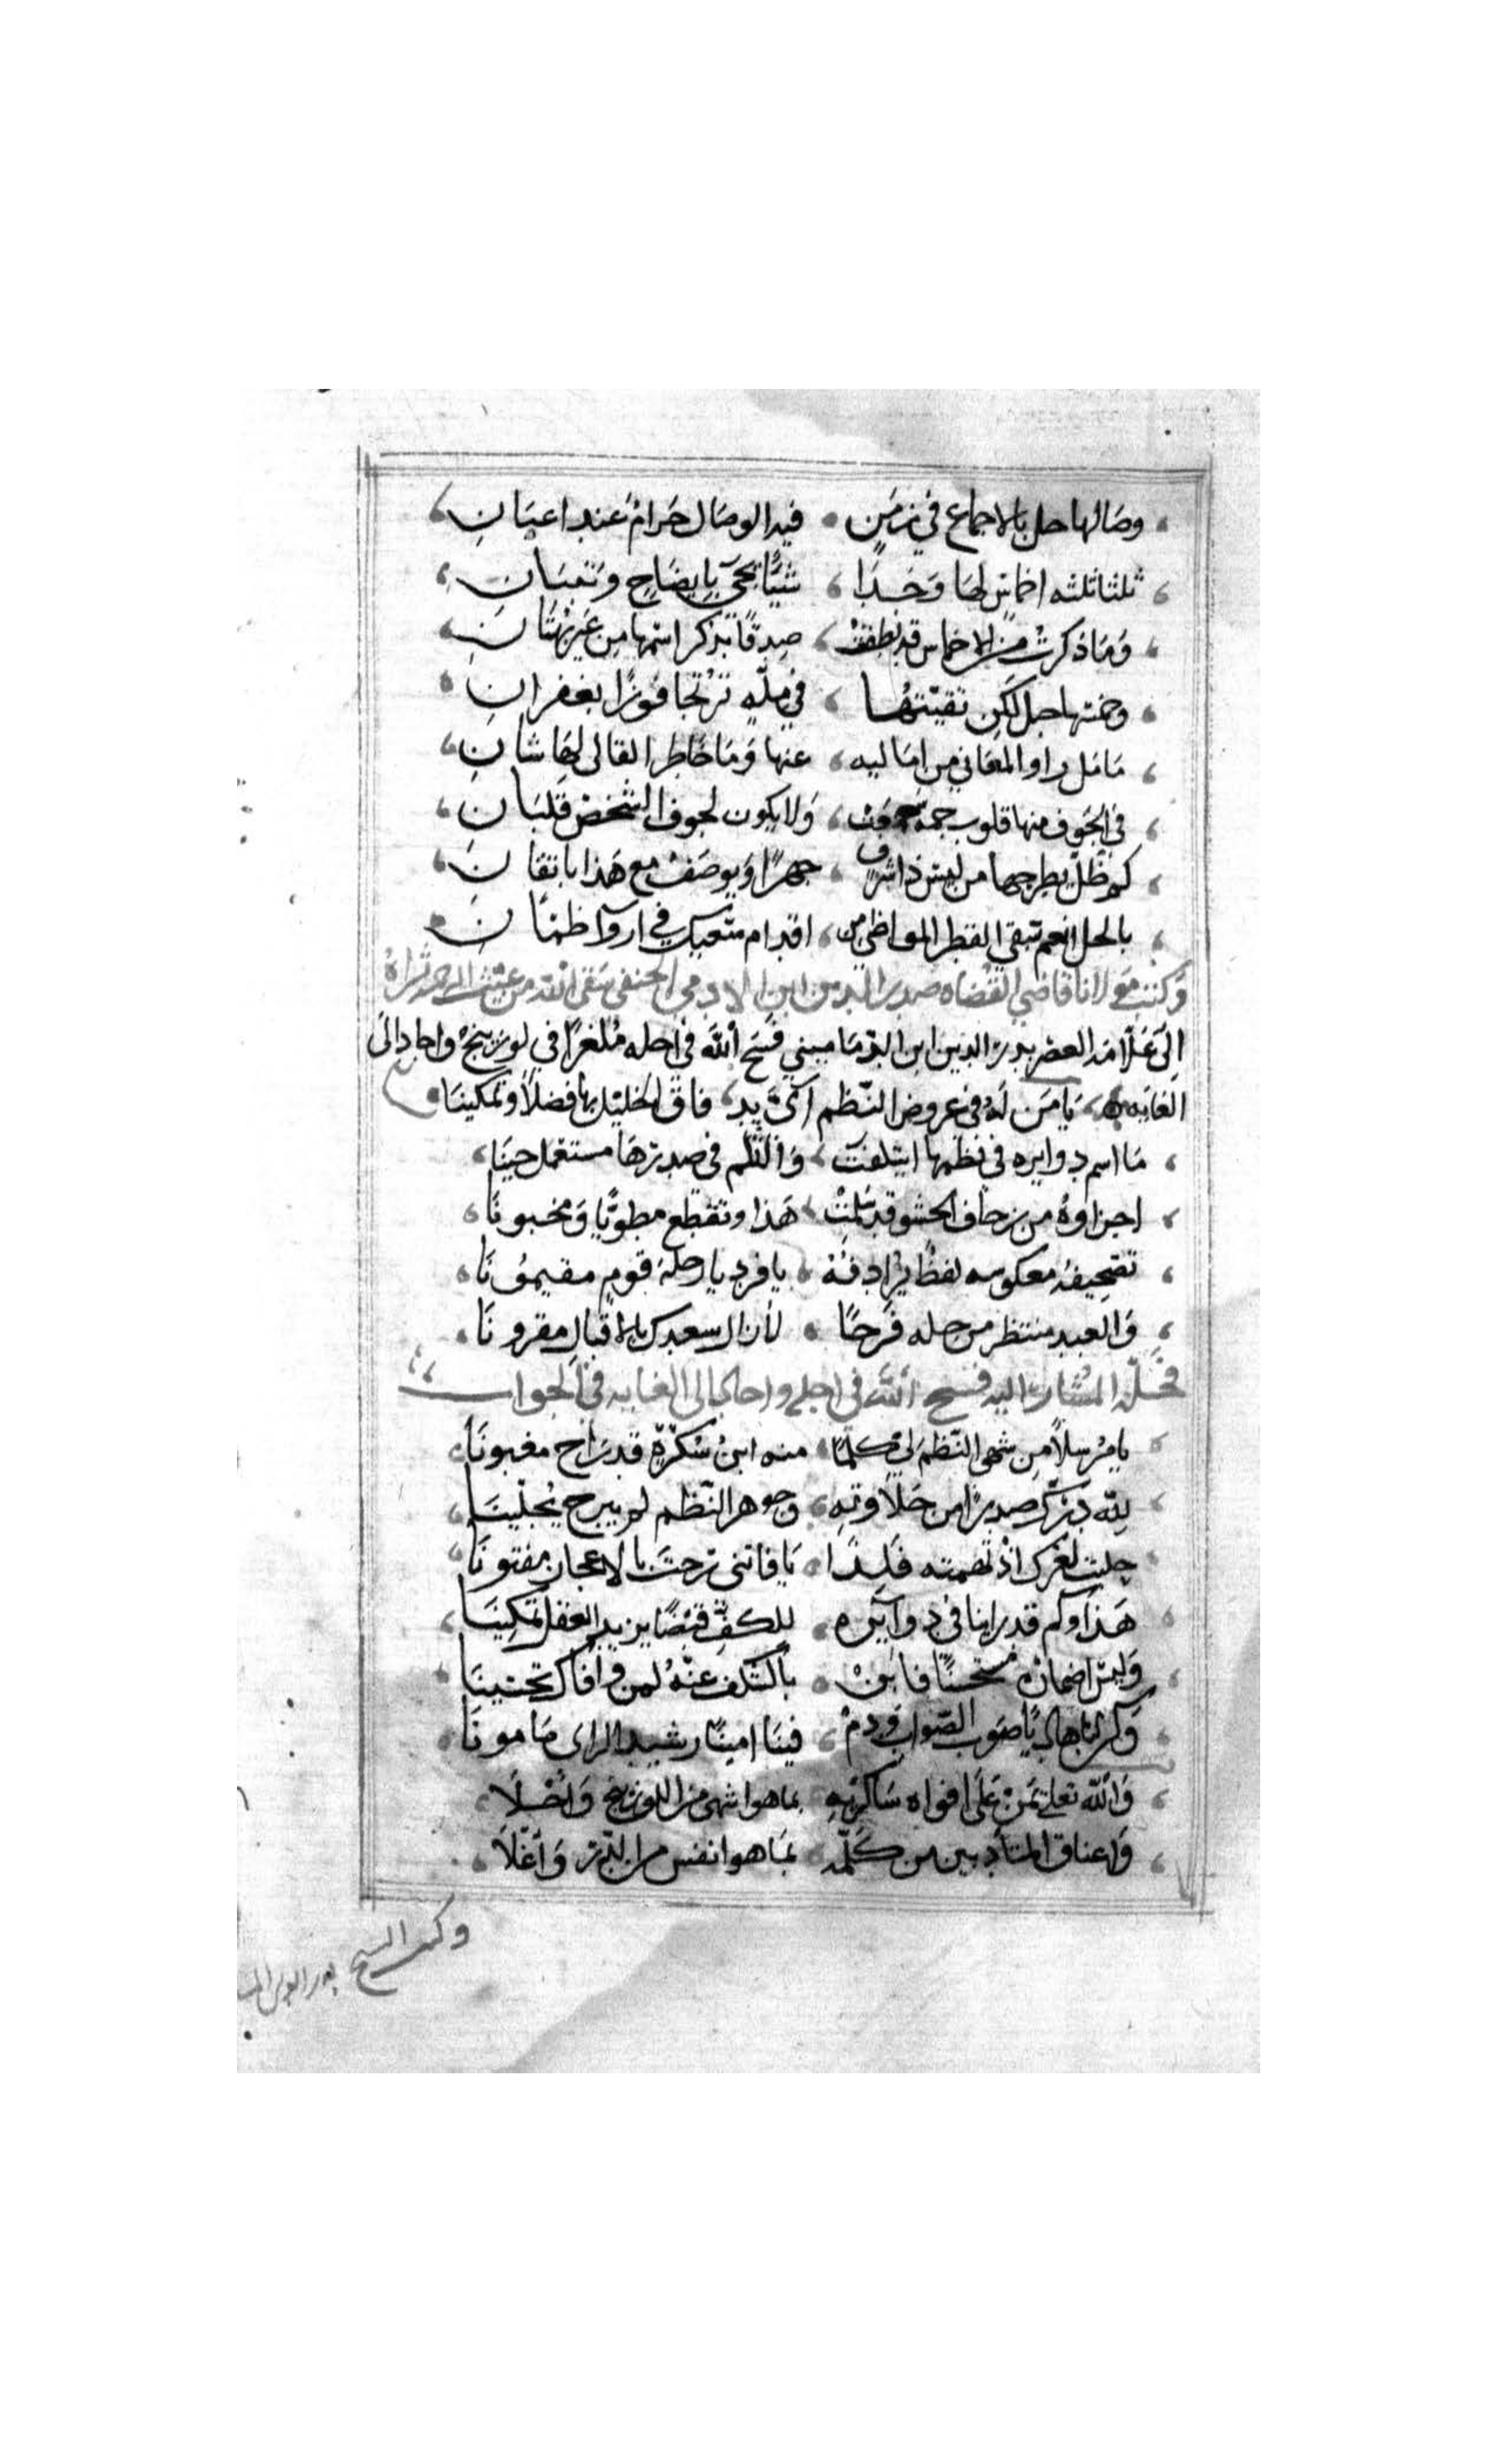 وصالها حل بالاجماع في زمنٍ فيه الوصال حرام عند اعيان
ثلثا ثلثه اخماس لها وخذا شيئا يجئ بايضاح وتبيان
وما ذكرت من الاخماس قد نطقت صدقا بذكر اسمها من غير بهتان
وخمتها حل لكن تقيتها في مله ترتجا فوزا بغفران
ما مل راو المعاني من اماليه عنها وما خاطر القالى لها شان
في الجوف منها قلوب جمة جمعت ولا يكون لجوف الشخص قلبان
كم ظل يطرحها من ليس ذا شرف جهرا ويوصف مع هذا باتقان
بالحل انعم تبقى القطر المواطى من اقدام متعيك في ارآ ظمان
وكتب مولانا قاضي القضاه صدر الدين ابن الادمي الحنفي سقى الله من غيث الرحمه ثراه
الى علامه العصر بدر الدين ابن الدماميني فسح الله في اجله ملغزا في لوزينج واجاد الى
الغايه يا من له في عروض النظم اىّ يد فاق الخليل بها فضلا وتمكينا
ما اسم دوايره في نظمها ايتلفت والثلم في صدرها مستعمل حينا
اجزاوه من زحاف الحشو قد سلمت هذا وتقطع مطويا ومخبونا
تصحيف معكوسه لفظ يرادفه يا فرد يا رحلة قوم مقيمونا
والعبد منتظر من حله فرحا لا زال سعدك بالاقبال مقرونا
فحله المشار اليه فسح الله في اجله واجاد الى الغايه في الجواب
يا مرسلا من شهى النظم لي كلما منه ابن سكرة قد راح مغبونا
لله درك صدرا من حلاوته وجوهر النظم لم يبرح يحلينا
حليت لغزك اذ ابهمته فلذا يا فاتنى رحت بالاعجاز مفتونا
هذا وكم قد راينا في دوايره للكف قبضا يزيد العقل تمكينا
وليس اضمانه مستحسنا فابن بالكشف عنه لمن وافاك تحسينا
وكن لنا هاديا صوب الصواب ودم فينا امينا رشيد الراى مامونا
والله تعلى يمن على افواه شاكريه بما هو اشهى من اللوزينج واحلا
واعناق المتادبين من كلمه بما هو انفس من الدر واغلا
وكتب الشيخ بدر الدين